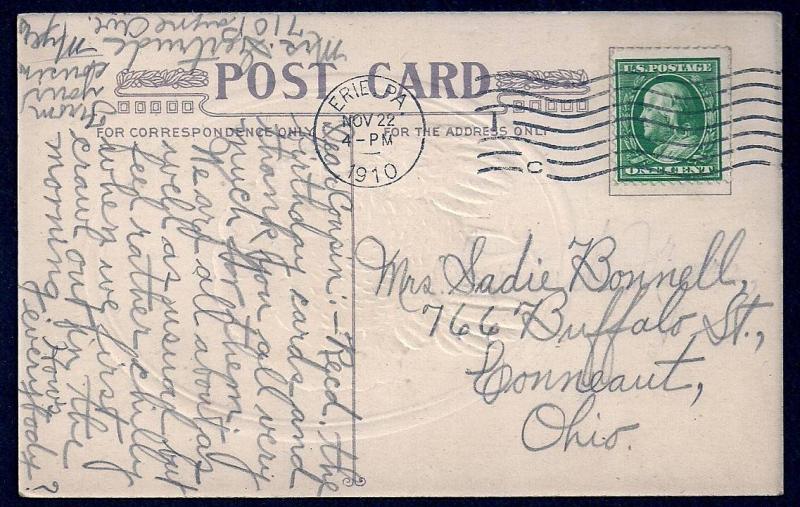 POST CARD
FOR CORRESPONDENCE ONLY
FOR THE ADDRESS ONLY
ERIE, PA
NOV 22
4-PM
1910
C
U.S. POSTAGE
ONE CENT
Mrs. Sadie Bonnell,
766 Buffalo St.,
Conneaut,
Ohio.
Dear Cousin:- Recd. the
birthday cards and
thank you all very
much for them.
We are all about as
well as usual but
feel rather chilly
when we first
crawl out in the
morning. How's
everybody?
From
your
cousin
Mrs. Gertrude
Myers
710
Payne Ave.